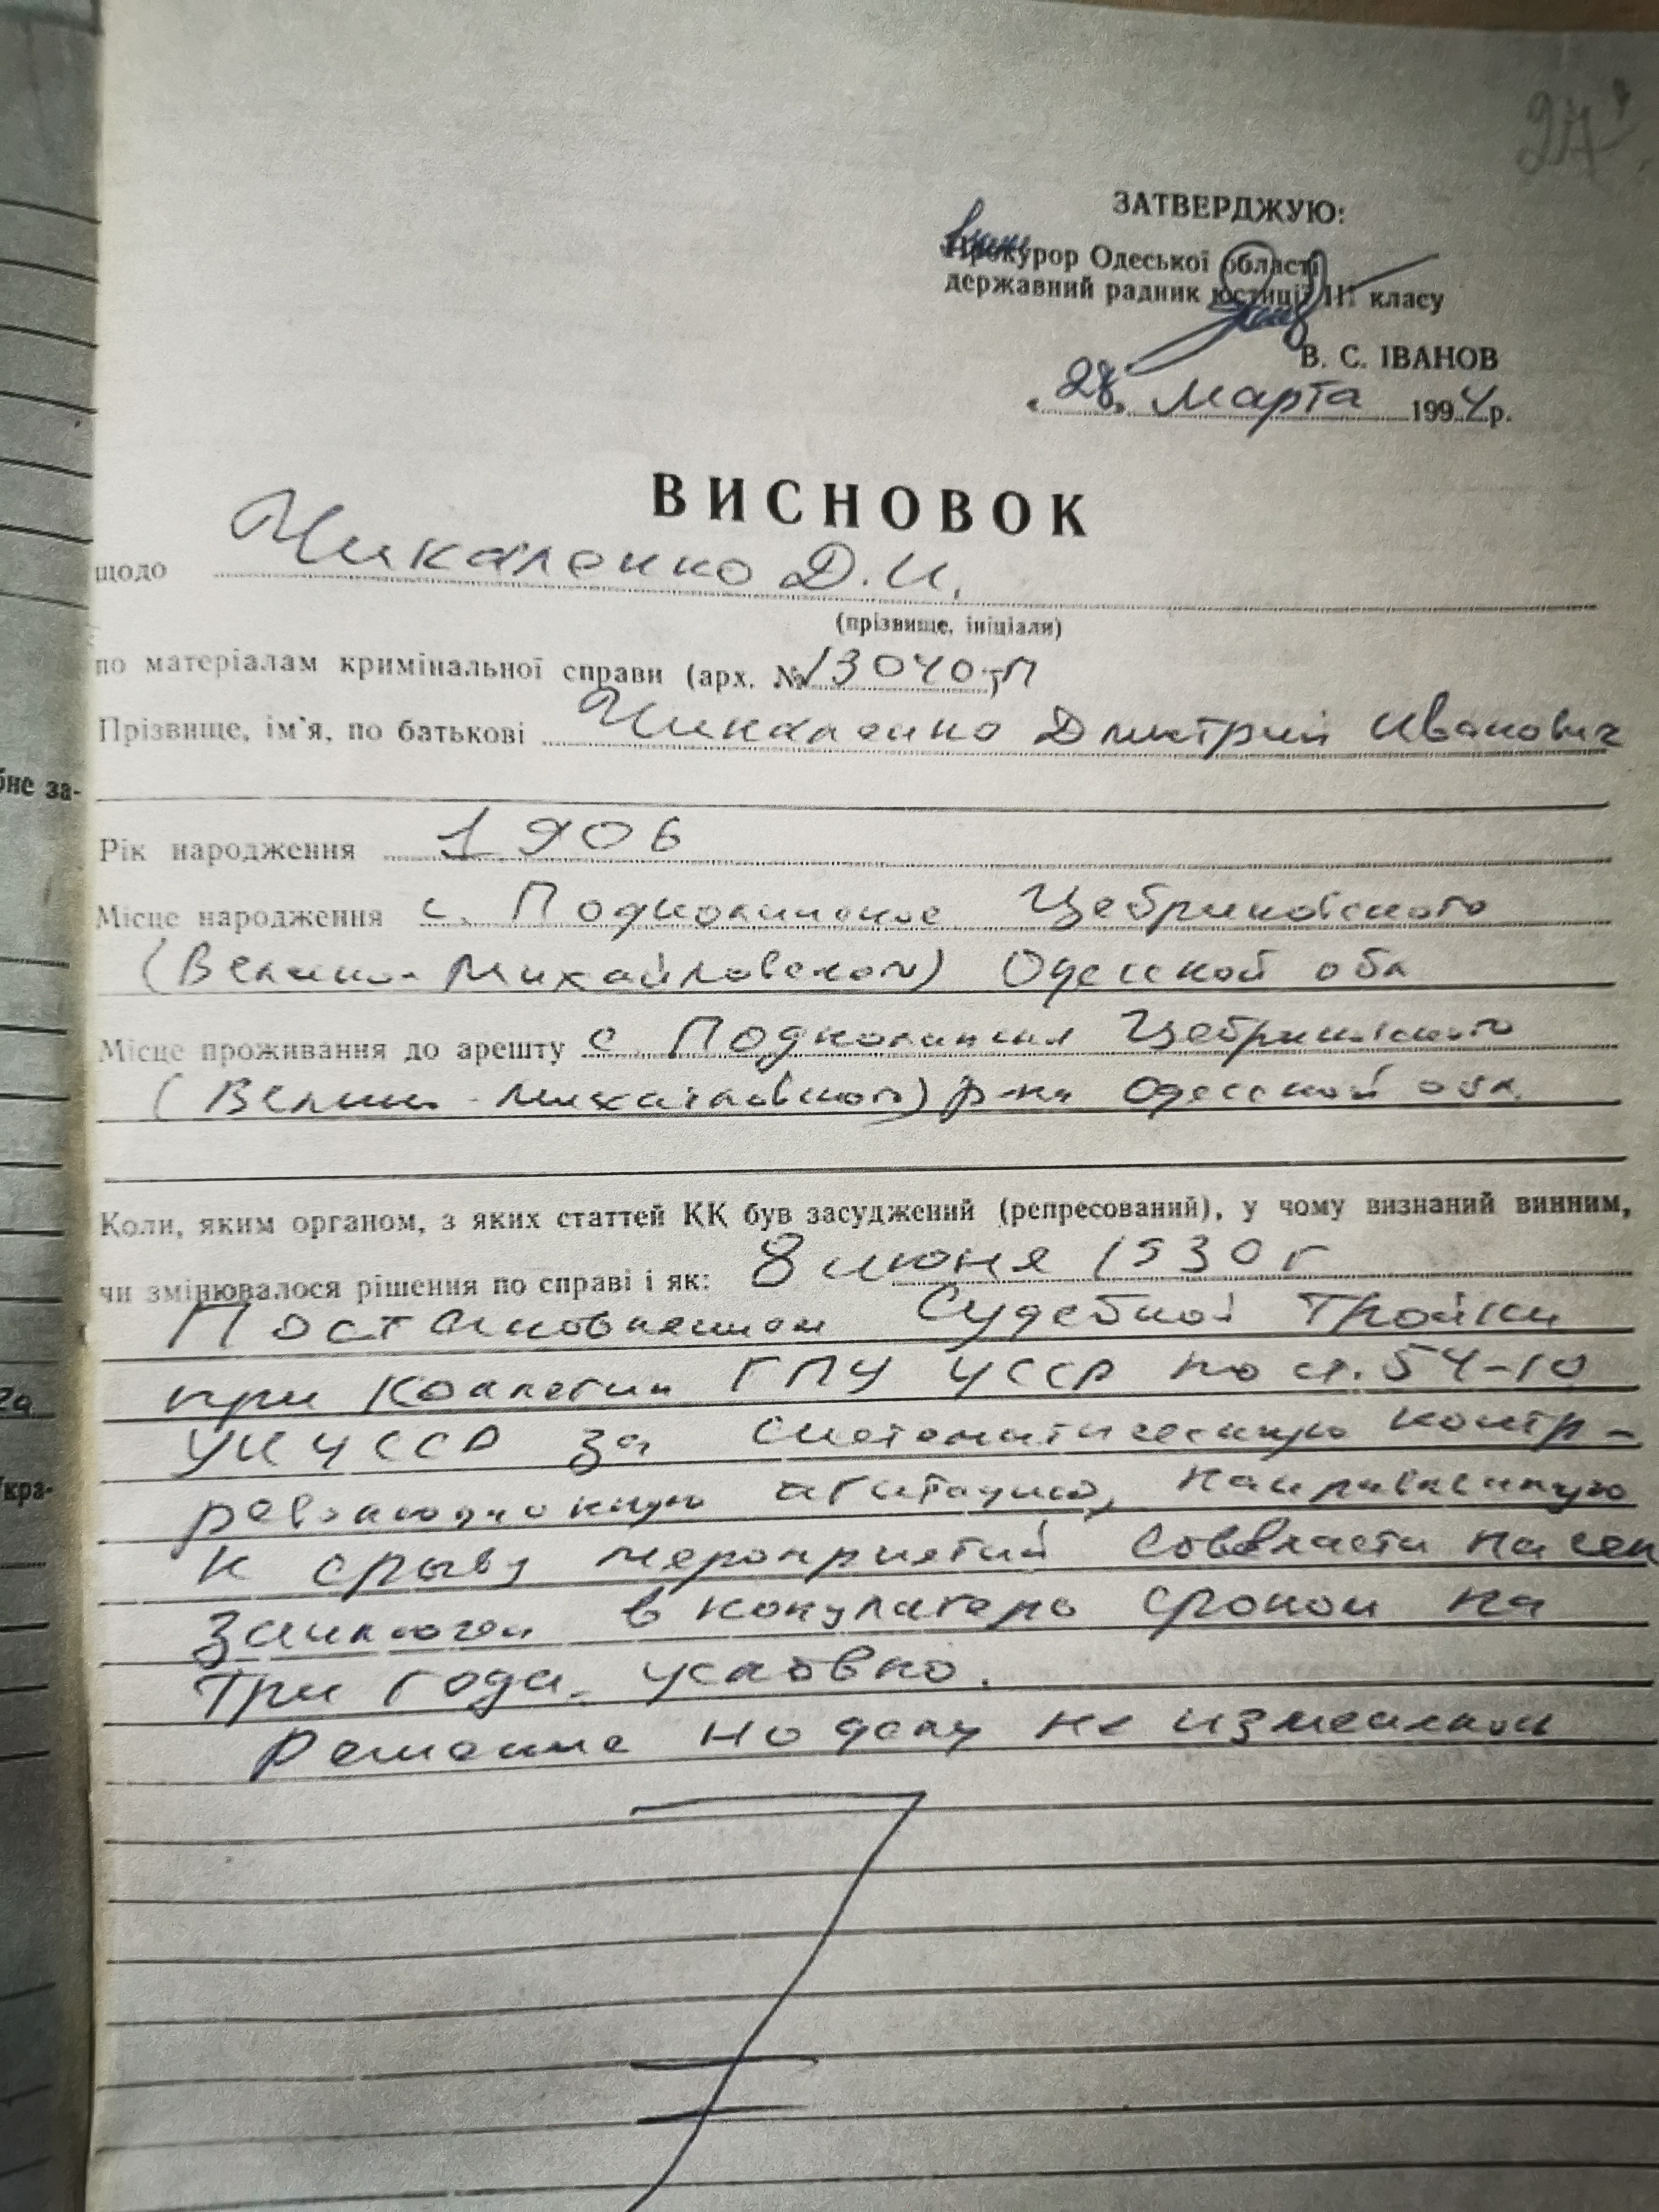 27
ЗАТВЕРДЖУЮ:
Прокурор Одеської області
державний радник юстиції III класу
В. С. ІВАНОВ
"28" марта 1994 р.
ВИСНОВОК
щодо Чикаленко Д.И.
(прізвище, ініціали)
по матеріалам кримінальної справи (арх. № 13040-П
Прізвище, ім'я, по батькові Чикаленко Дмитрий Иванович
бне за-
Рік народження 1906
Місце народження с. Цебриковского
(Велико-Михайловского) Одесской обл
Місце проживання до арешту с. Цебриковского
(Велико-Михайловского) р-на Одесской обл.
Коли, яким органом, з яких статтей КК був засуджений (репресований), у чому визнаний винним,
чи змінювалося рішення по справі і як: 8 июня 1930 г
Постановлением Судебной Тройки
при Коллегии ГПУ УССР по ст. 54-10
УК УССР за систематическую контр-
революционную агитацию, направленную
к срыву мероприятий Соввласти на селе
заключен в концлагерь сроком на
три года условно.
Решение по делу не изменялось